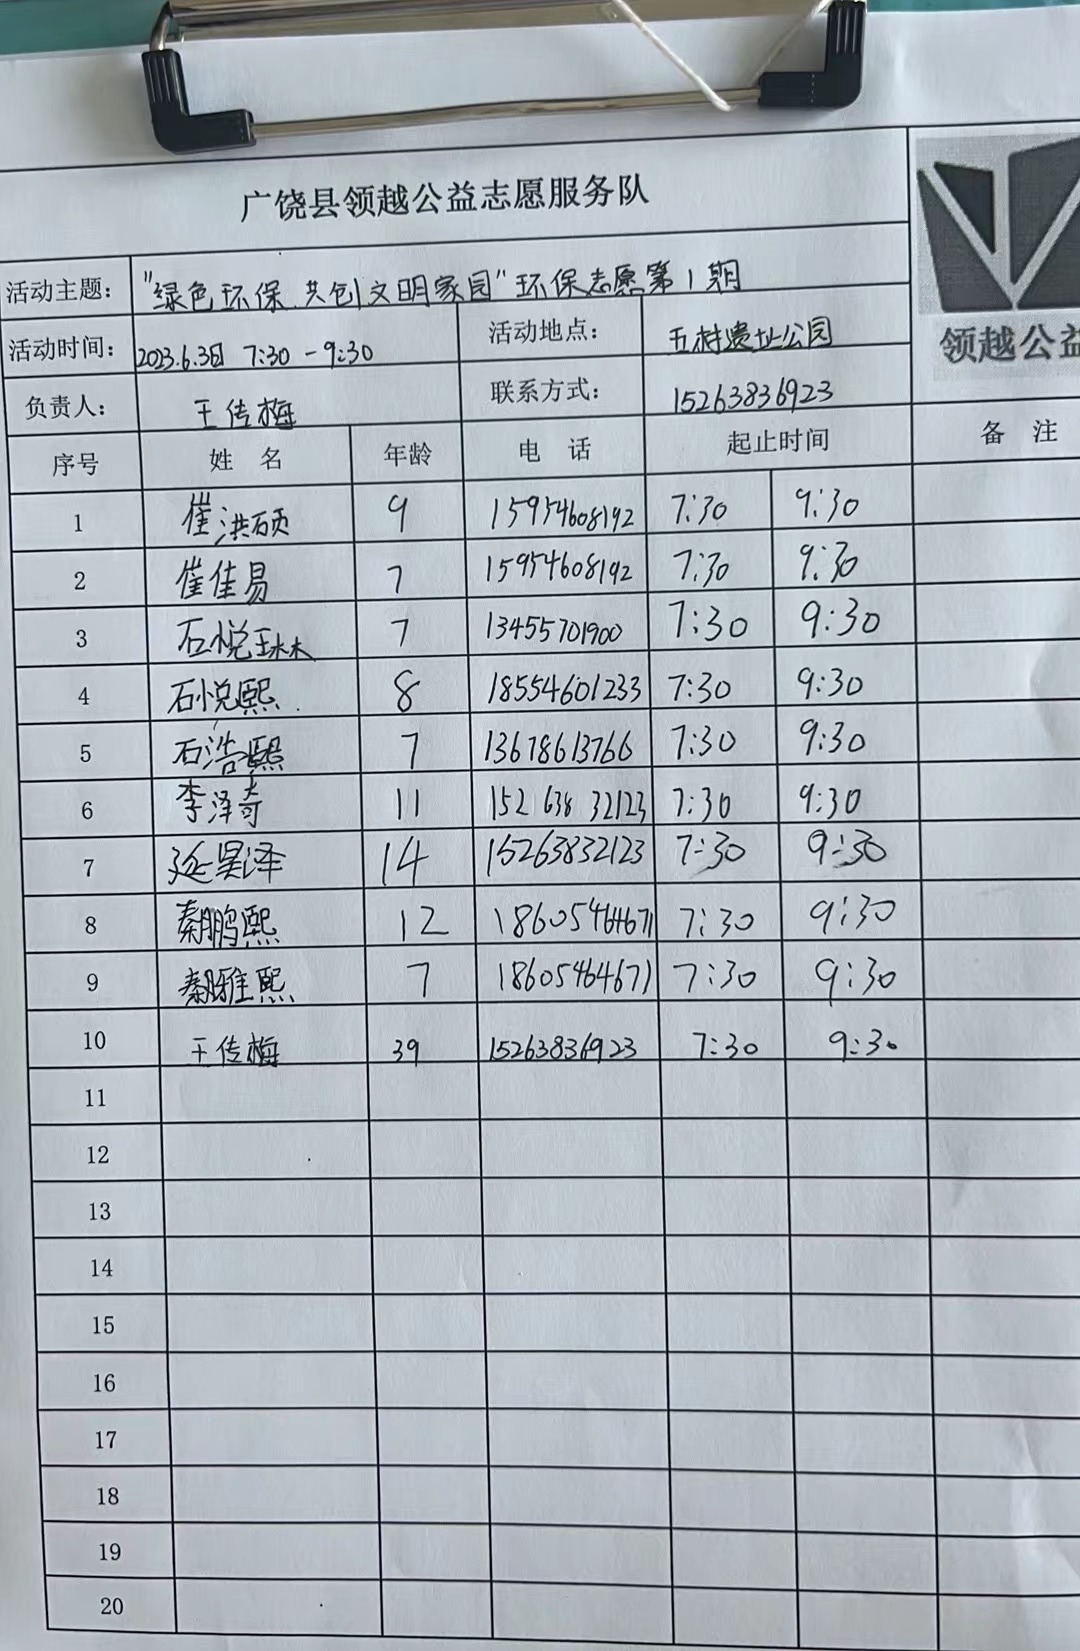 广饶县领越公益志愿服务队
领越公益
活动主题： "绿色环保 共创文明家园"环保志愿第1期
活动时间： 2023.6.3日 7:30-9:30 活动地点： 五村遗址公园
负责人： 王传梅 联系方式： 15263836923
序号 姓 名 年龄 电 话 起止时间 备 注
1 崔洪硕 9 15954608192 7:30 9:30
2 崔佳易 7 15954608192 7:30 9:30
3 石悦琳 7 13455701900 7:30 9:30
4 石悦熙 8 18554601233 7:30 9:30
5 石浩熙 7 13678613766 7:30 9:30
6 李泽奇 11 15263832123 7:30 9:30
7 延昊泽 14 15263832123 7:30 9:30
8 秦鹏熙 12 18605464671 7:30 9:30
9 秦雅熙 7 18605464671 7:30 9:30
10 王传梅 39 15263836923 7:30 9:30
11
12
13
14
15
16
17
18
19
20